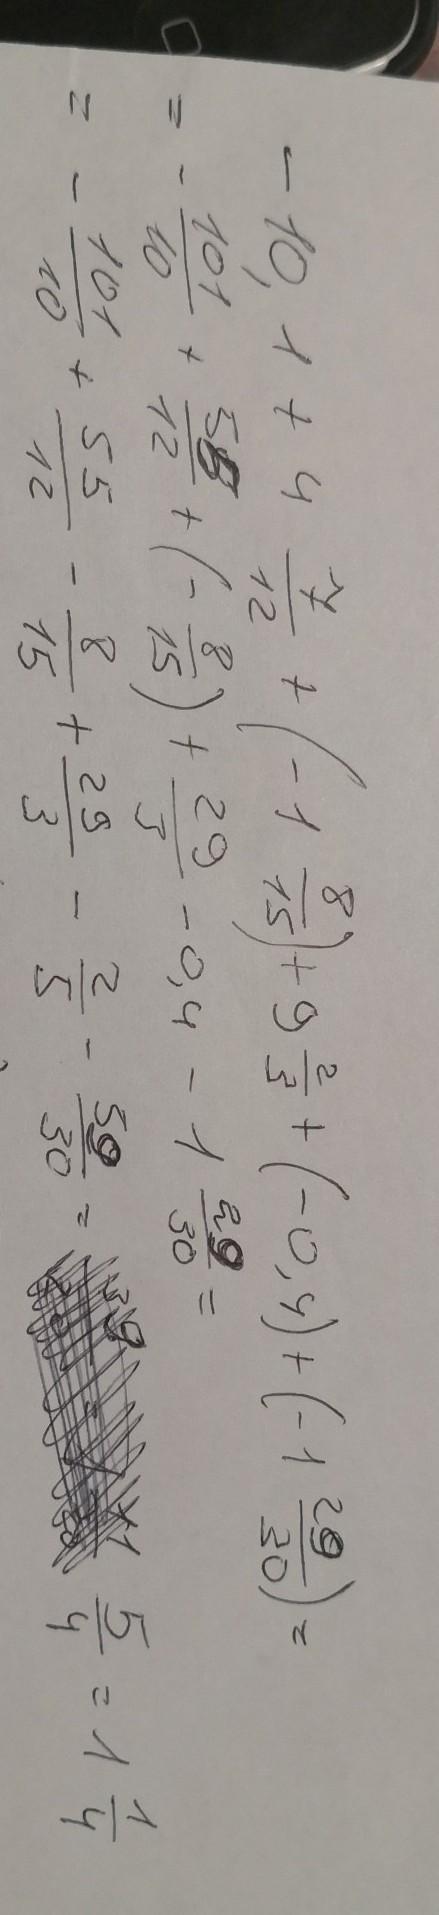 -10,1 + 4 7/12 + (-1 8/15) + 9 2/3 + (-0,4) + (-1 29/30) =
= - 101/10 + 55/12 + (- 8/15) + 29/3 - 0,4 - 1 29/30 =
= - 101/10 + 55/12 - 8/15 + 29/3 - 2/5 - 59/30 = 5/4 = 1 1/4